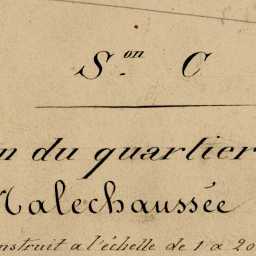 S.on C
n du quartier
Malechaussée
nstruit a l'échelle de 1 a 20